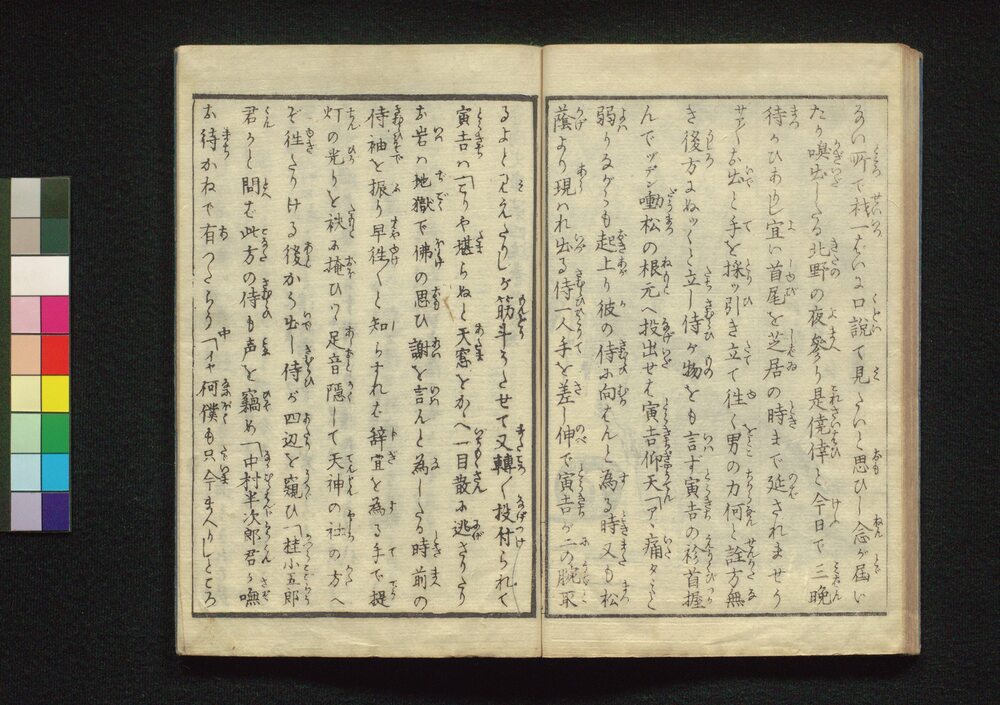 ない所で我一もいにロ説て見たいと思ひし念が届い
たか嗅出したる北野の夜参り是僥倖と今日で三晩
待かひあり宜い首尾を芝居の時まで延されませう
サアお出と手を採り引き立て往く男の力何と詮方無
き後方にぬツくと立し侍が物をも言す寅吉の衿首握
んでヅデン動松の根元へ投出せば寅吉仰天「アヽ痛タ
弱りながらも起上り彼の侍に向はんと為る時又も松
蔭より現はれ出る侍一人手を差し伸て寅吉が二の腕取
るよと見えたりしが筋斗うたせて又轉く投付られて
寅吉ハ「こりや堪らぬと天窓をかゝへ一目散に逃さりたり
お岩ハ地獄で佛の思ひ謝を言んと為したる時前の
侍袖を振り早往くと知らすれば辞宜を為る手で提
灯の光りを袂に掩ひつ足音隠して天神の社の方へ
ぞ往たりける後から出し侍が四辺を窺ひ「桂小五郎
君かと問ば此方の侍も声を竊め「中村半次郎君か嘸
お待かねで有つたらう 中「イヤ何僕も只今まゐりしところ